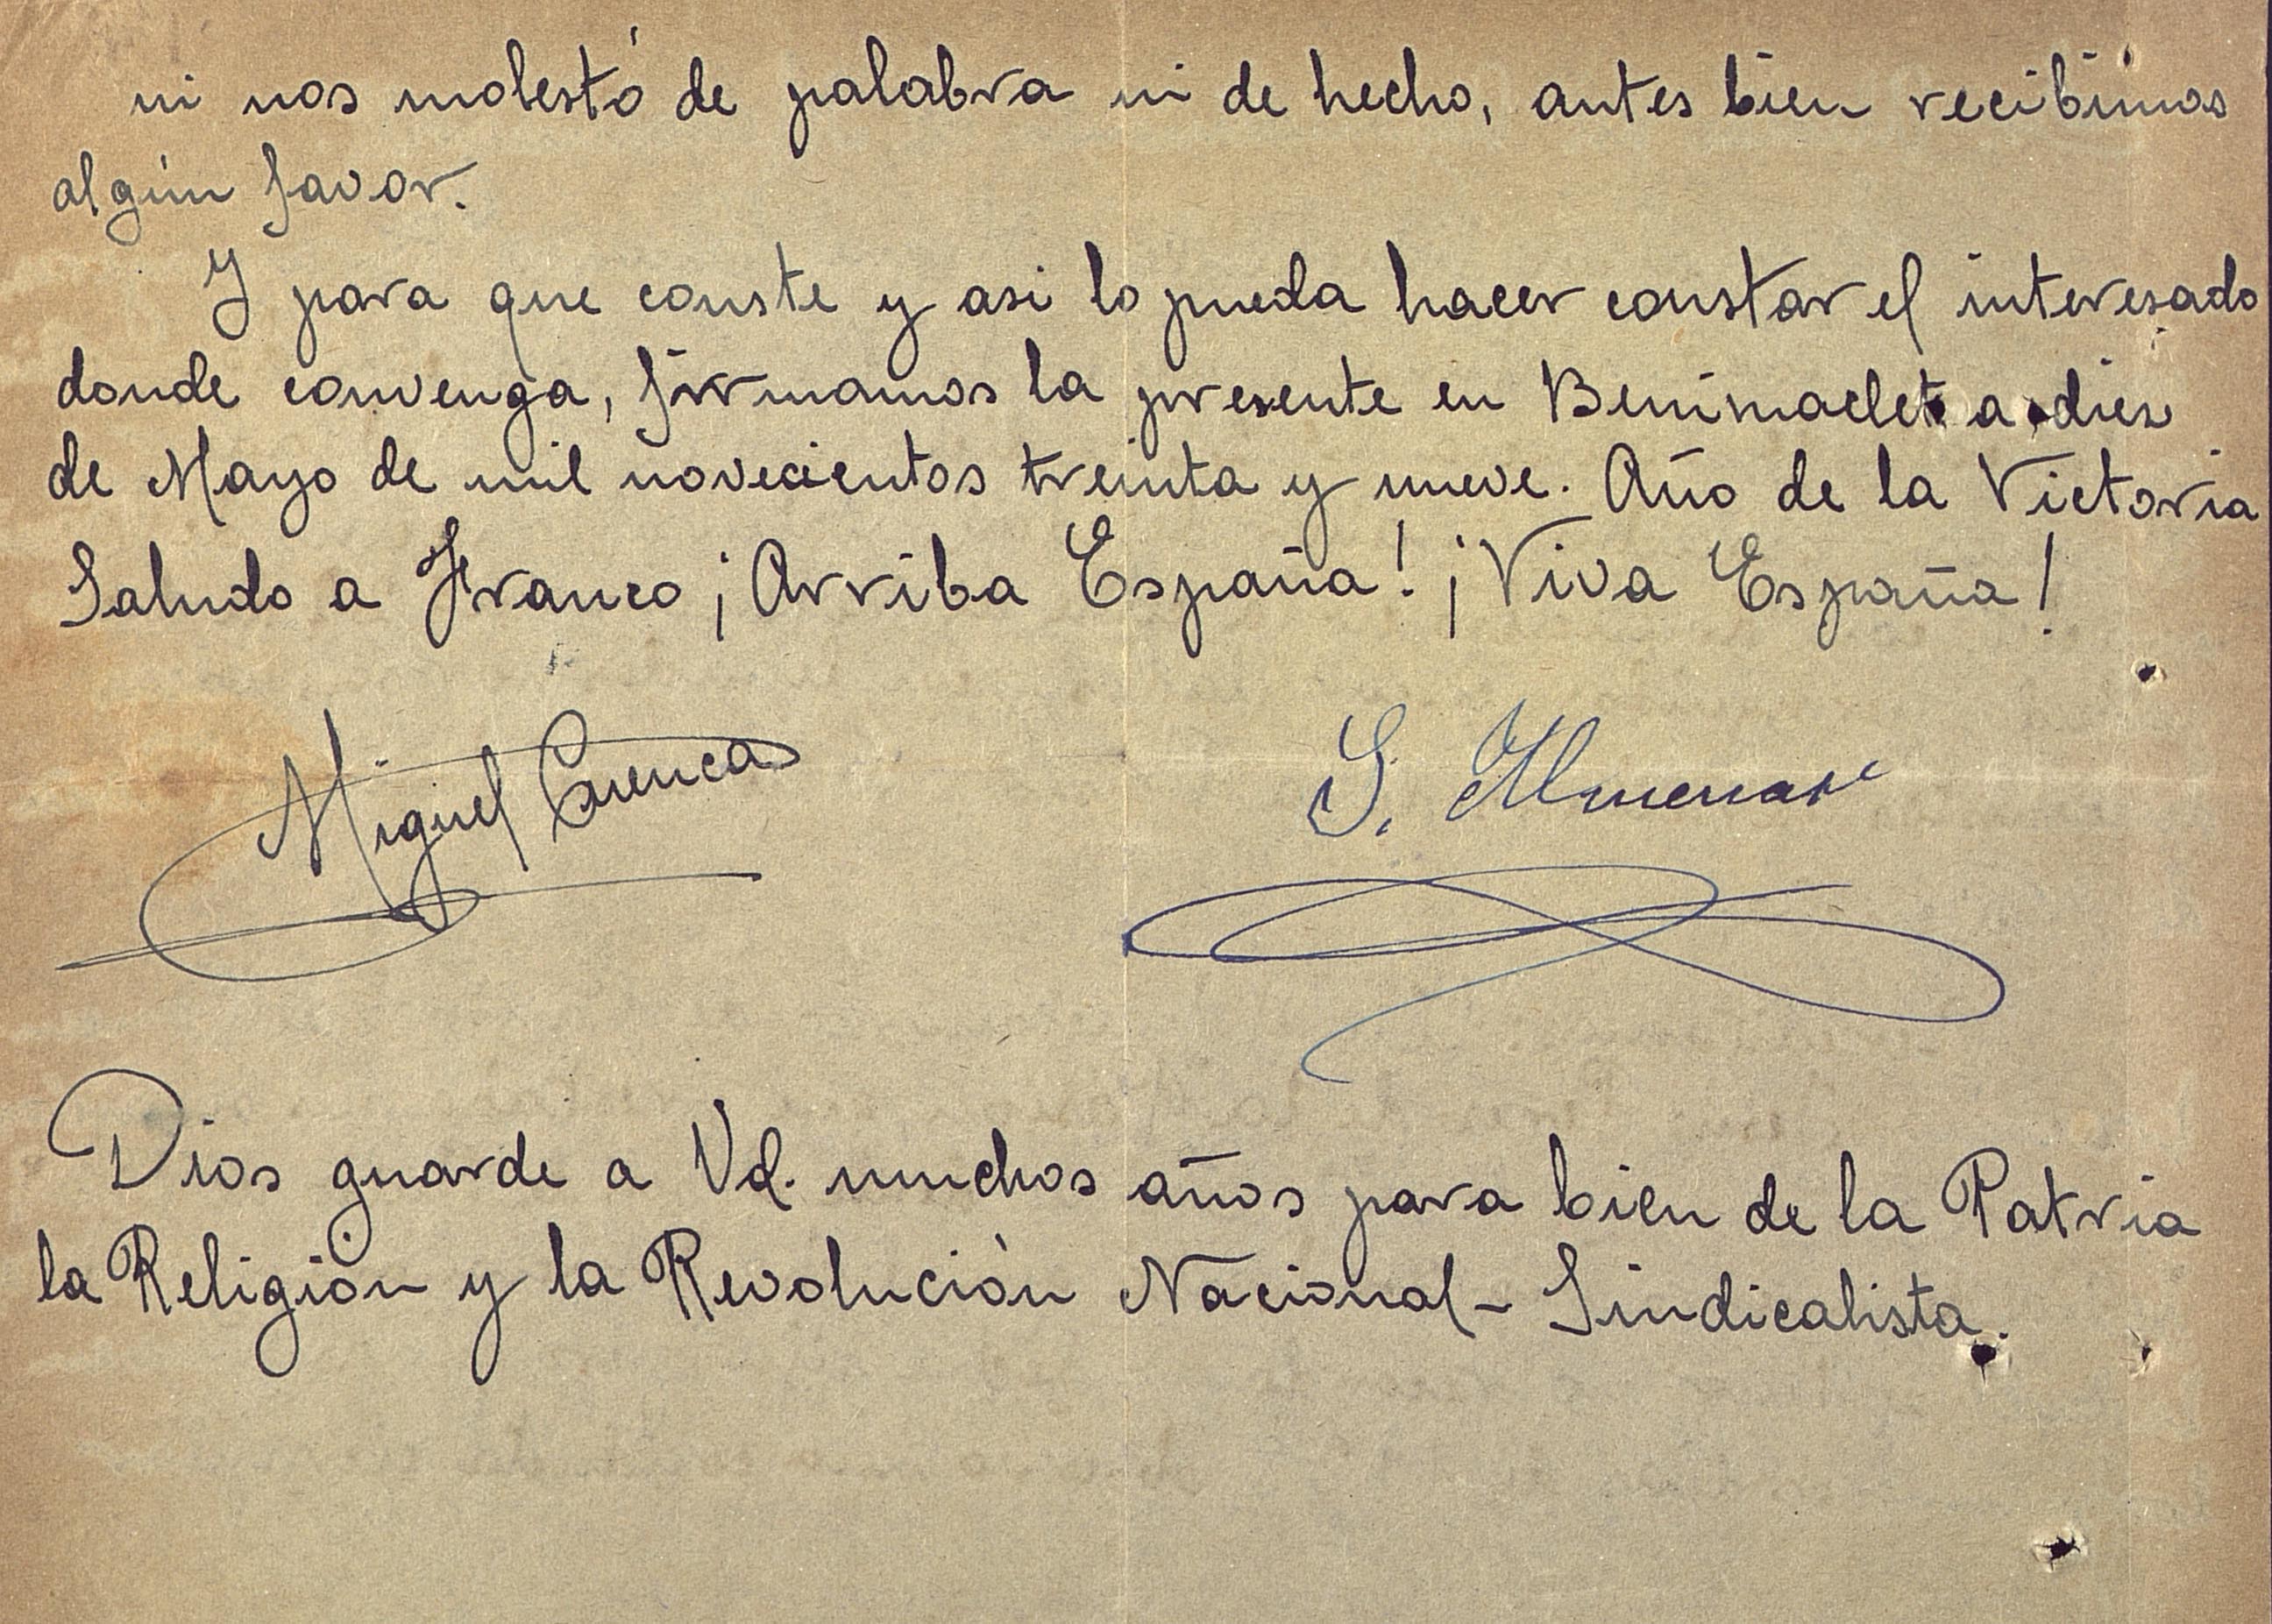 ni nos molestó de palabra ni de hecho, antes bien recibimos
algún favor.
Y para que conste y asi lo pueda hacer constar el interesado
donde convenga, firmamos la presente en Benimaclet a diez
de Mayo de mil novecientos treinta y nueve. Año de la Victoria
Saludo a Franco ¡Arriba España! ¡Viva España!
Miguel Cuenca
S. Almenar
Dios guarde a Vd. muchos años para bien de la Patria
la Religión y la Revolución Nacional-Sindicalista.